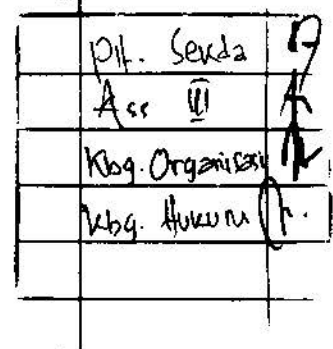 Plt. Sekda
Ass III
Kbg. Organisasi
Kbg. Hukum